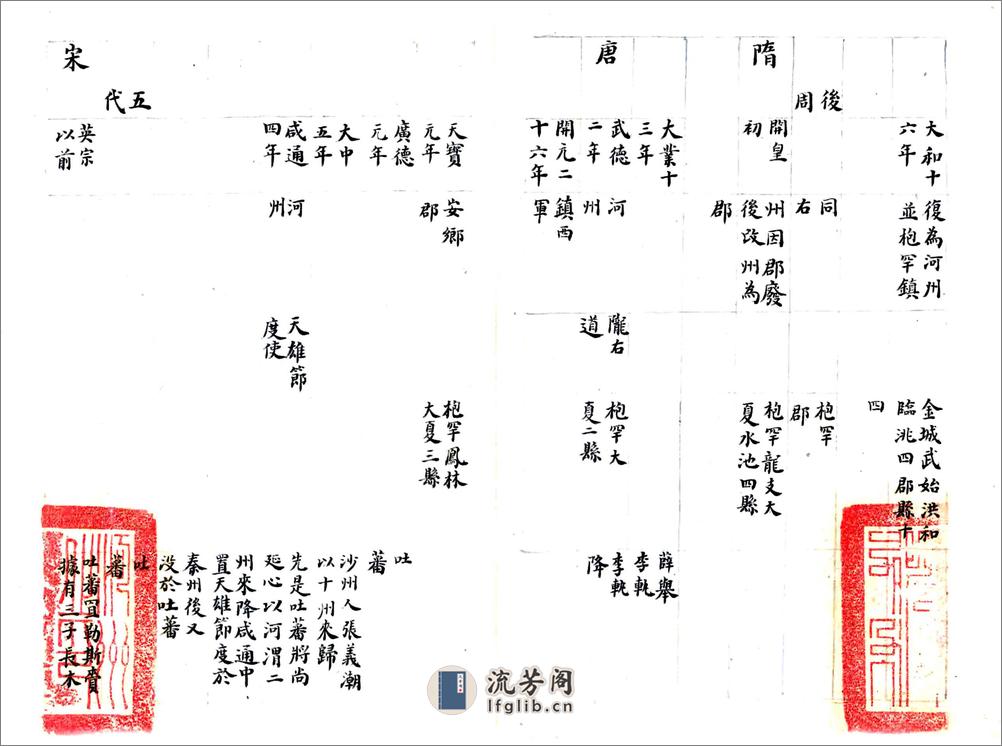 大和十
六年
復為河州
並枹罕鎮
金城武始洪和
臨洮四郡縣十
四
後
周
同
右
枹罕
郡
隋
開皇
初
州因郡廢
後改州為
郡
枹罕龍支大
夏水池四縣
大業十
三年
薛舉
李軌
唐
武德
二年
河
州
隴右
道
枹罕大
夏二縣
李軌
降
開元二
十六年
鎮西
軍
天寶
元年
安鄉
郡
枹罕鳳林
大夏三縣
廣德
元年
吐
蕃
大中
五年
沙州人張義潮
以十州來歸
咸通
四年
河
州
天雄節
度使
先是吐蕃將尚
延心以河渭二
州來降咸通中
置天雄節度於
秦州後又
沒於吐蕃
五
代
吐
蕃
宋
英宗
以前
吐蕃罝勒斯賚
據有三子長木
流芳阁
lfglib.cn